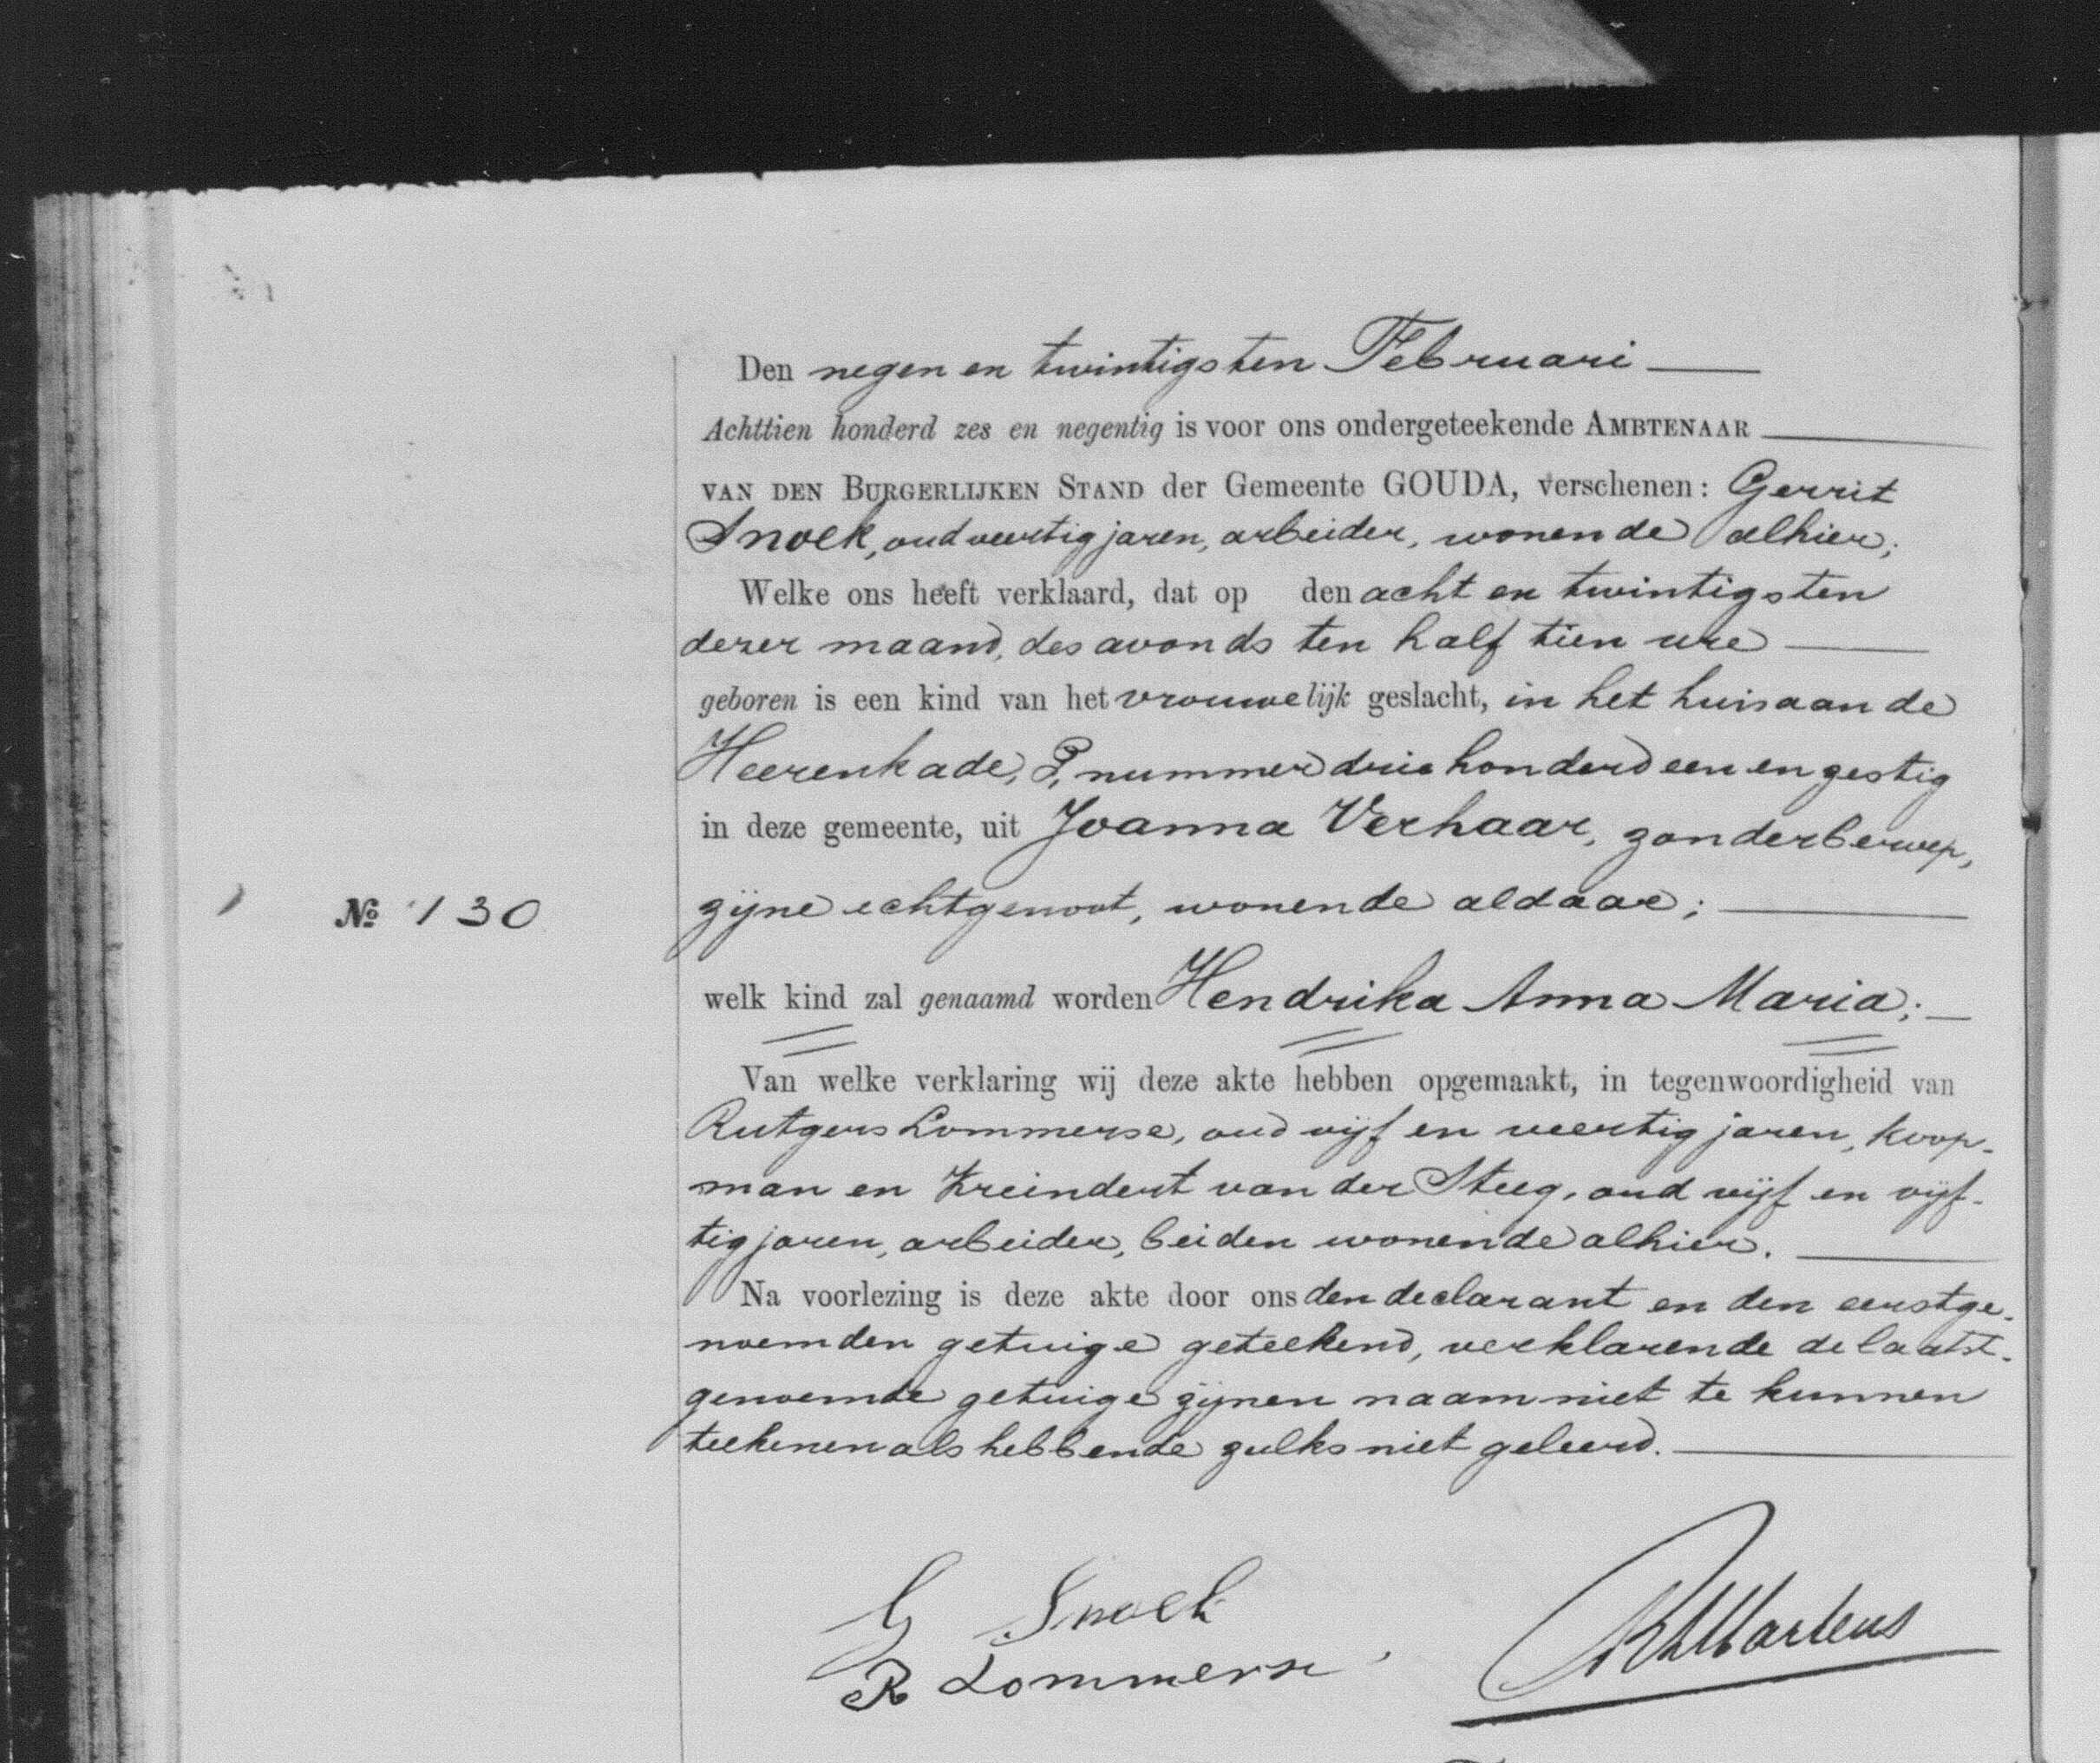 Den negen en twintigsten Februari
Achttien honderd zes en negentig is voor ons ondergeteekende AMBTENAAR
VAN DEN BURGERLIJKEN STAND der Gemeente GOUDA, verschenen: Gerrit
Snoek, oud veertig jaren, arbeider, wonende alhier;
Welke ons heeft verklaard, dat op den acht en twintigsten
dezer maand, des avonds ten half tien ure
geboren is een kind van het vrouwelijk geslacht, in het huis aan de
Heerenkade, P, nummer drie honderd een en zestig
in deze gemeente, uit Joanna Verhaar, zonder beroep,
No 130
zijne echtgenoot, wonende aldaar;
welk kind zal genaamd worden Hendrika Anna Maria;
Van welke verklaring wij deze akte hebben opgemaakt, in tegenwoordigheid van
Rutgerus Lommerse, oud vijf en veertig jaren, koop-
man en van der Steeg, oud vijf en vijf-
tig jaren, arbeider, beiden wonende alhier.
Na voorlezing is deze akte door ons den declarant en den eerstge-
noemden getuige geteekend, verklarende de laatst-
genoemde getuige zijnen naam niet te kunnen
teekenen als hebbende zulks niet geleerd.
G Snoek
R Lommerse
Martens